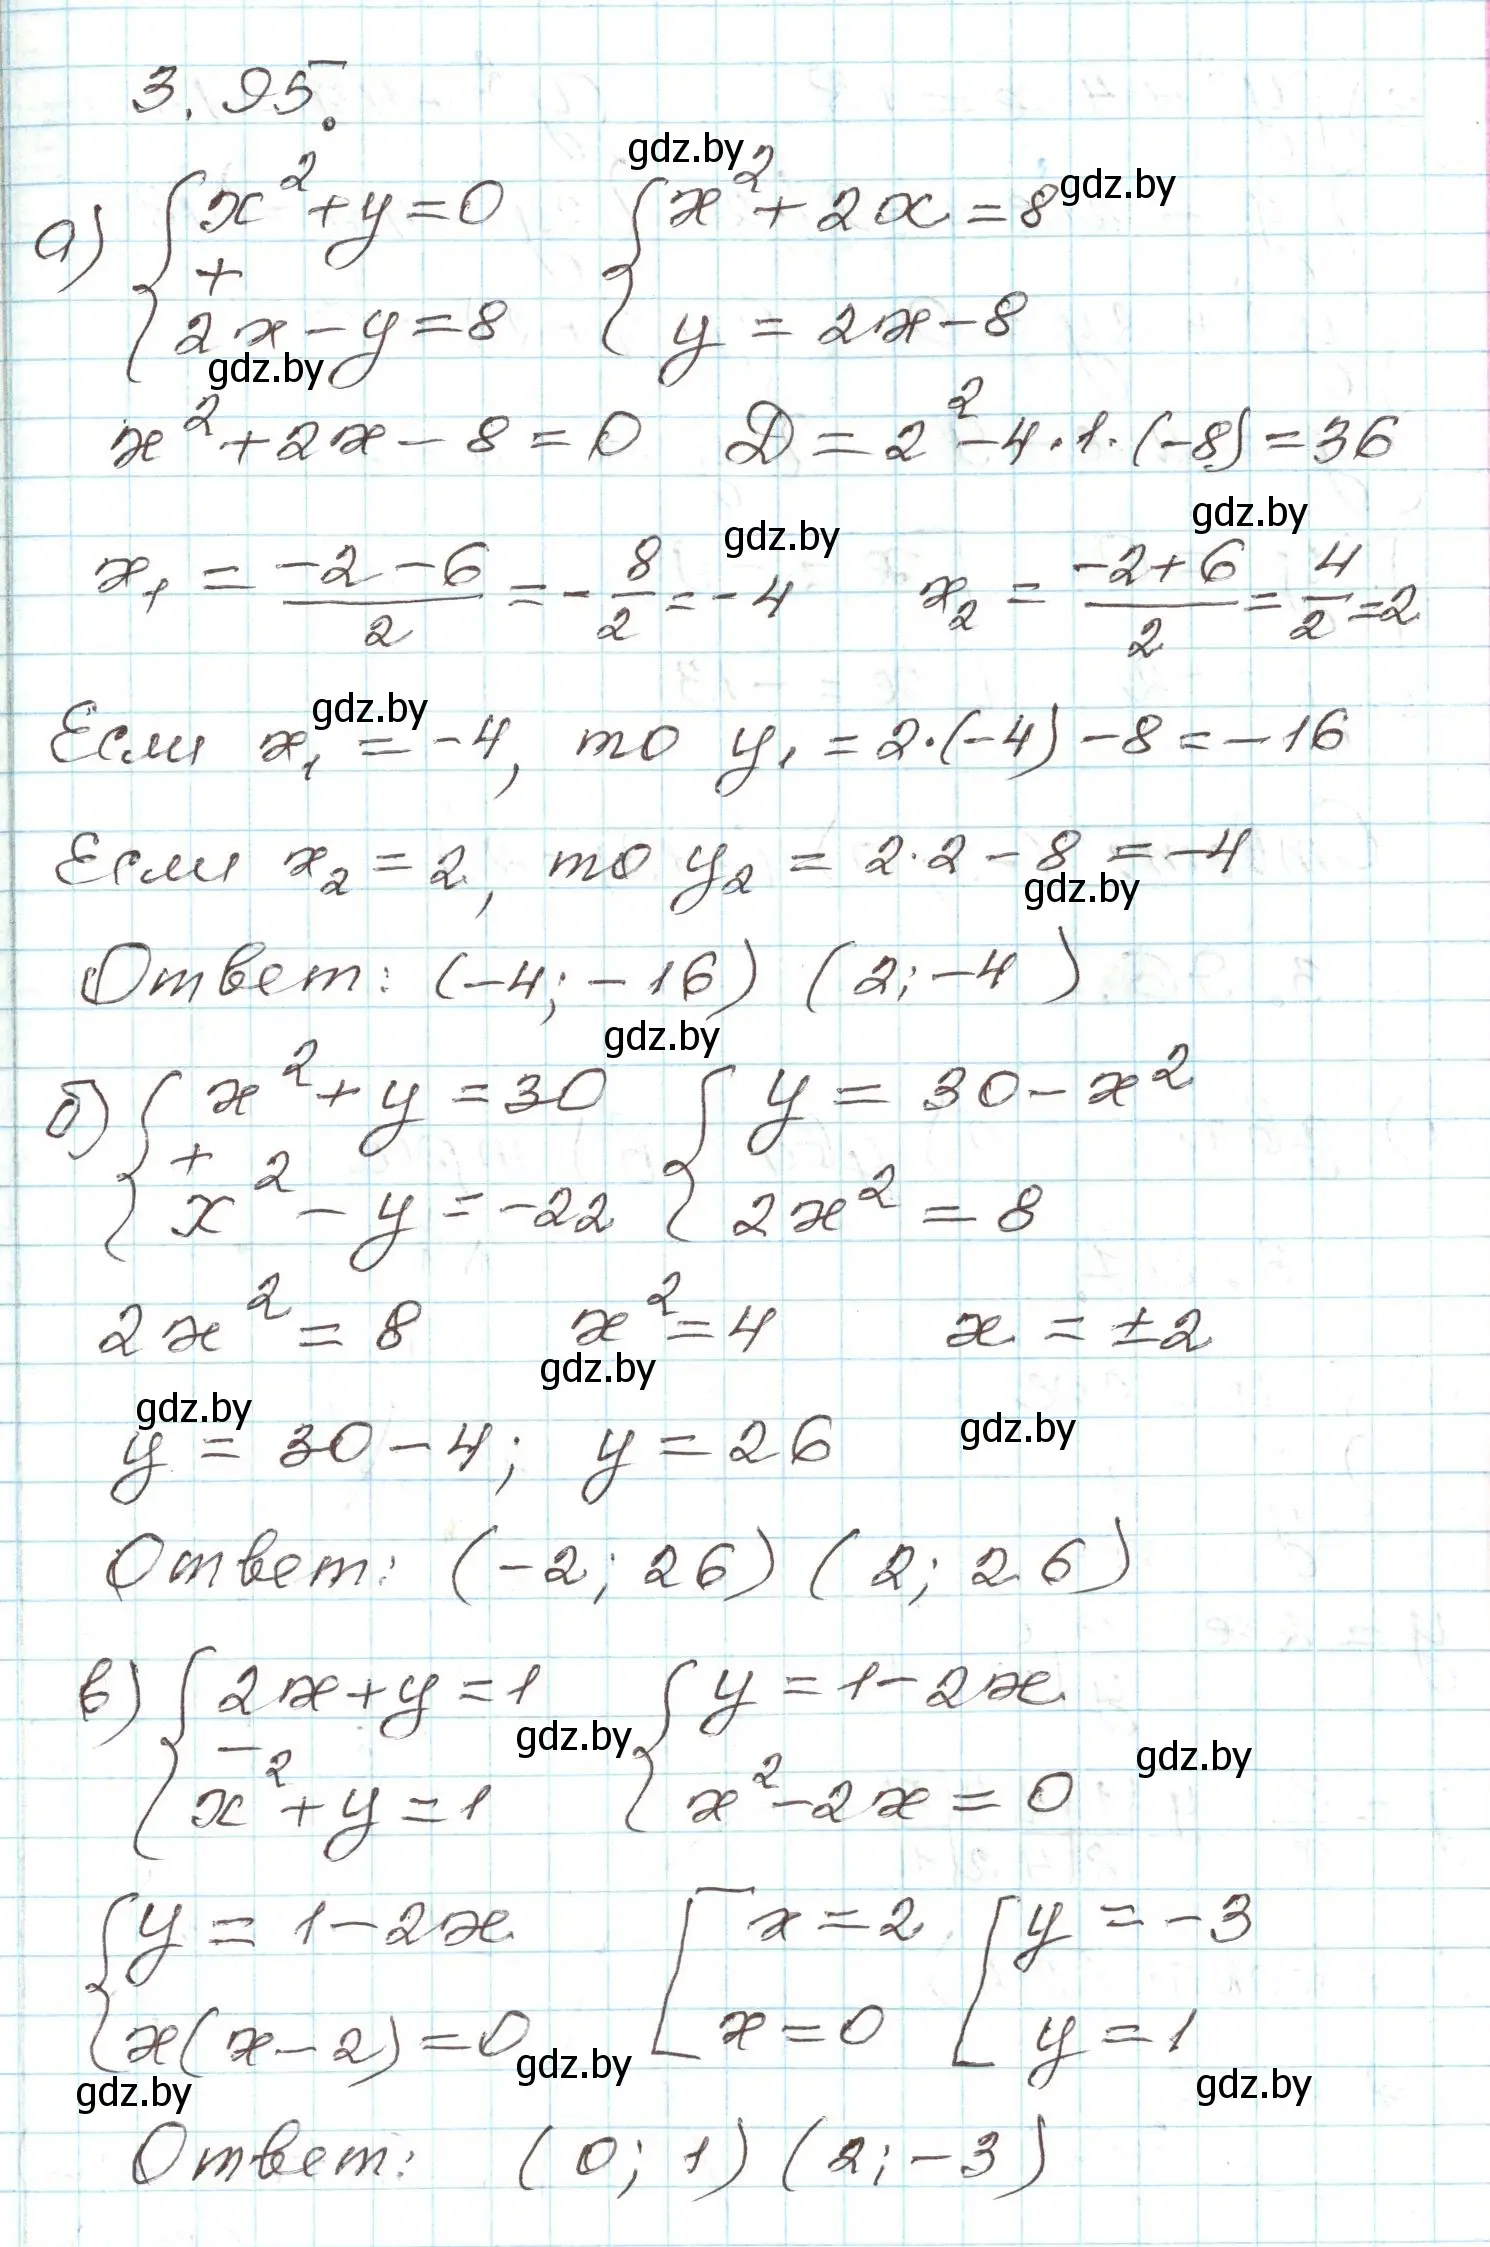 3.95.
gdz.by
а) { x² + y = 0   { x² + 2x = 8 gdz.by
+
2x - y = 8   y = 2x - 8
gdz.by
x² + 2x - 8 = 0   D = 2² - 4·1·(-8) = 36
gdz.by gdz.by
x₁ = (-2 - 6)/2 = -8/2 = -4   x₂ = (-2 + 6)/2 = 4/2 = 2
gdz.by
Если x₁ = -4, то y₁ = 2·(-4) - 8 = -16
Если x₂ = 2, то y₂ = 2·2 - 8 = -4
gdz.by
Ответ: (-4; -16) (2; -4)
gdz.by
б) { x² + y = 30   { y = 30 - x²
+
x² - y = -22   2x² = 8
2x² = 8   x² = 4   x = ±2
gdz.by
gdz.by gdz.by
y = 30 - 4; y = 26
Ответ: (-2; 26) (2; 26)
в) { 2x + y = 1   { y = 1 - 2x
gdz.by gdz.by
-
x² + y = 1   x² - 2x = 0
{ y = 1 - 2x   [ x = 2   [ y = -3
x(x - 2) = 0   x = 0   y = 1
gdz.by gdz.by gdz.by
Ответ: (0; 1) (2; -3)